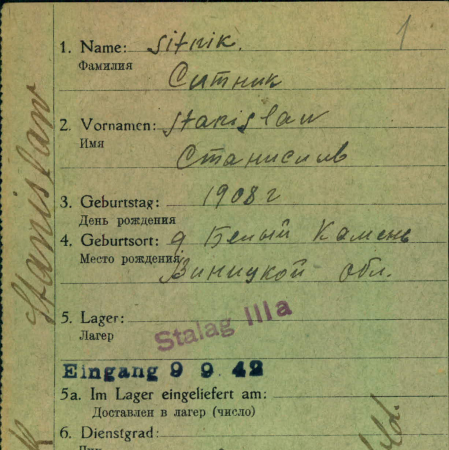 1
1. Name: Sitnik.
Фамилия
Ситник
2. Vornamen: Stanislaw
Имя
Станислив
3. Geburtstag: 1908 г
День рождения
4. Geburtsort: д Белый Камень
Место рождения Виницкой обл.
5. Lager:
Лагер
Stalag IIIa
Eingang 9 9. 42
5a. Im Lager eingeliefert am:
Доставлен в лагер (число)
6. Dienstgrad:
Stanislaw